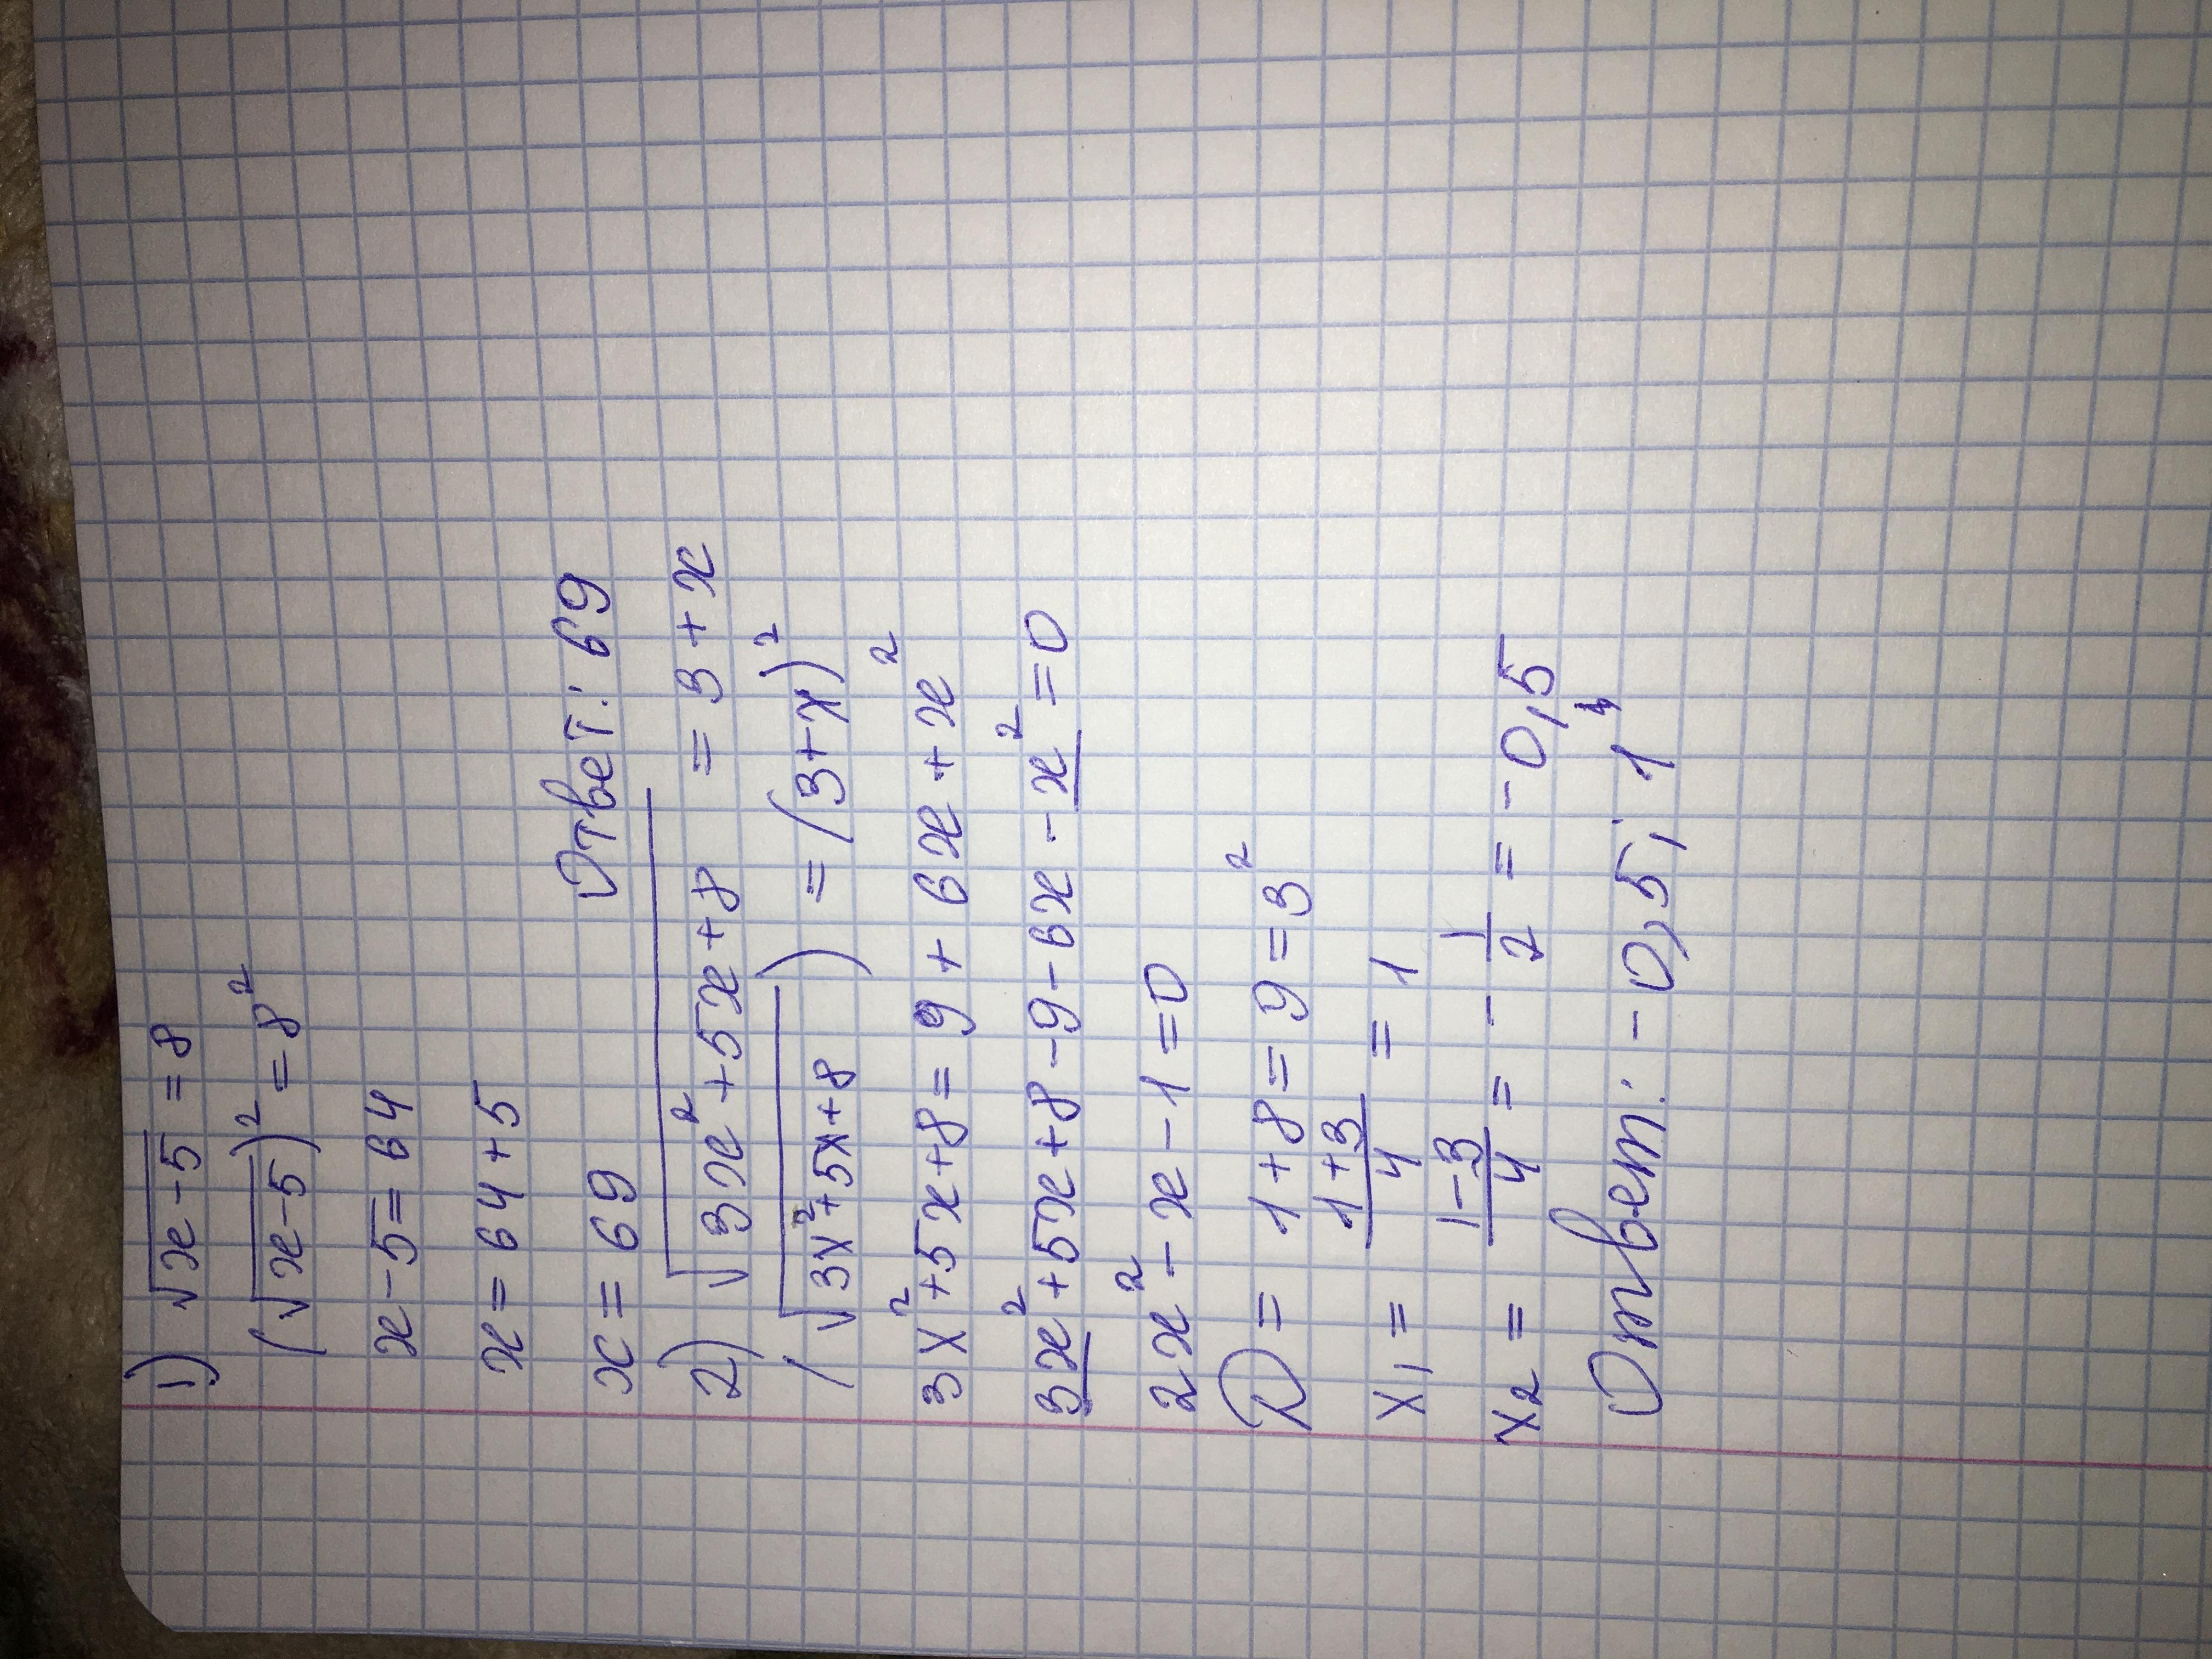 1) √x-5 = 8
(√x-5)² = 8²
x-5=64
x=64+5
x=69
Ответ: 69
2) √3x²+5x+8 = 3+x
(√3x²+5x+8) = (3+x)²
3x²+5x+8=9+6x+x²
3x²+5x+8-9-6x-x²=0
2x²-x-1=0
D=1+8=9=3²
x₁ = 1+3/4 = 1
x₂ = 1-3/4 = -1/2 = -0,5
Ответ: -0,5; 1